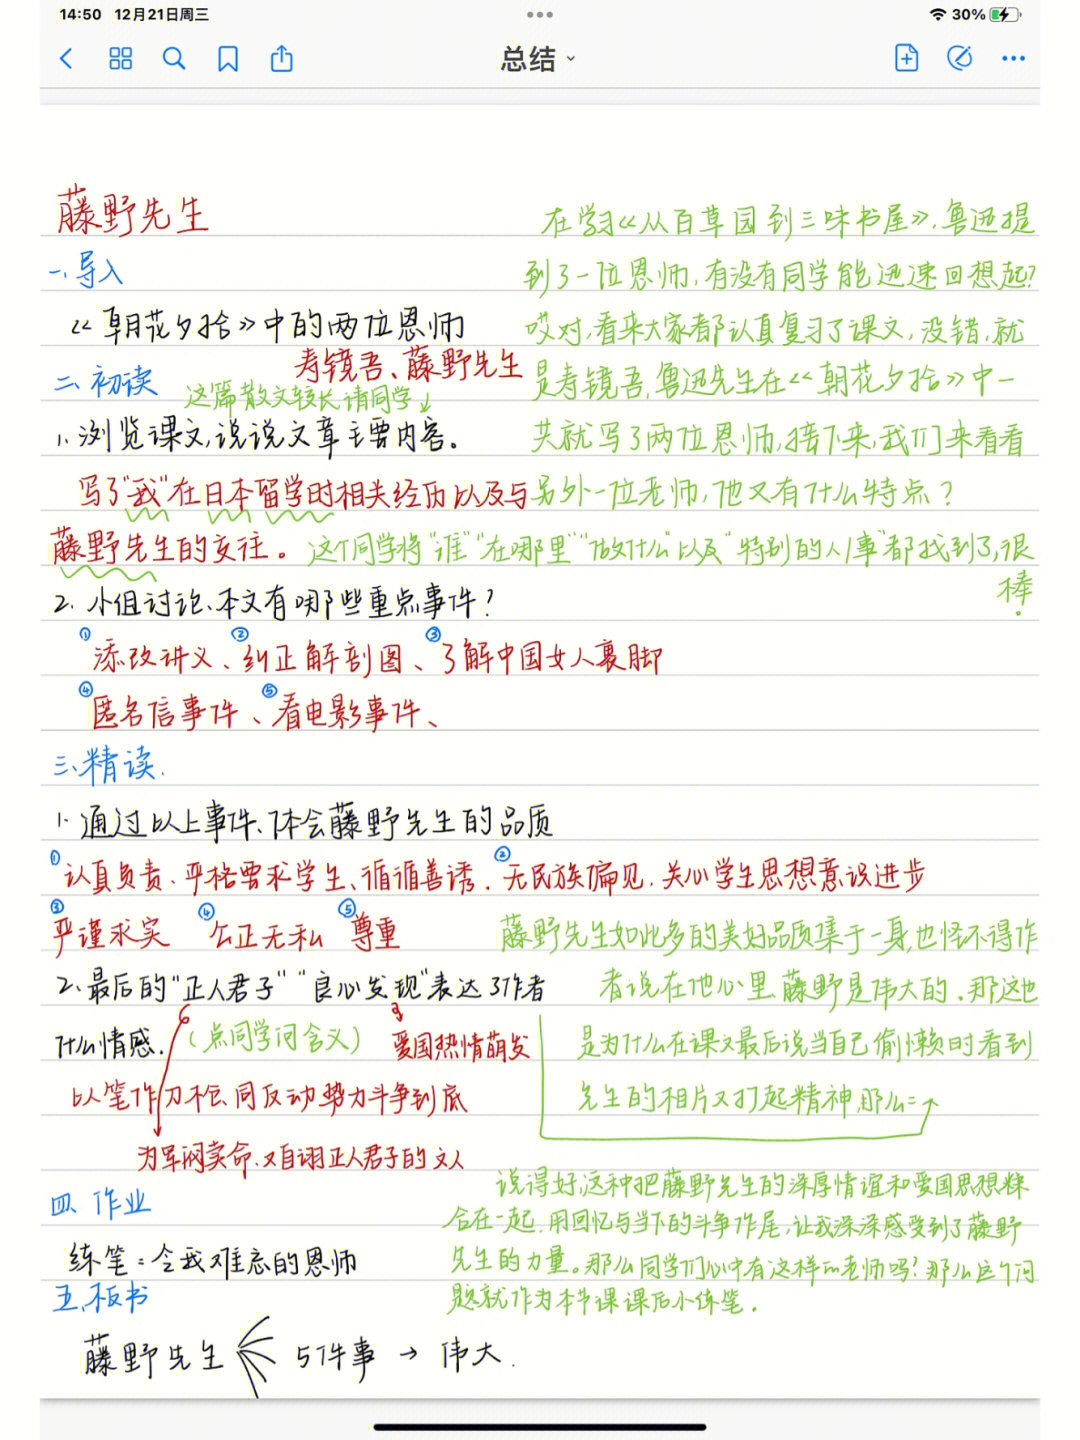 14:50 12月21日周三
30%
总结
藤野先生
一、导入
《朝花夕拾》中的两位恩师
寿镜吾、藤野先生
二、初读
这篇散文较长,请同学↓
1、浏览课文,说说文章主要内容。
写了“我”在日本留学时相关经历以及与
藤野先生的交往。
在学习《从百草园到三味书屋》,鲁迅提
到了一位恩师,有没有同学能迅速回想起?
哎对,看来大家都认真复习了课文,没错,就
是寿镜吾,鲁迅先生在《朝花夕拾》中一
共就写了两位恩师,接下来,我们来看看
另外一位老师,他又有什么特点?
这个同学将“谁”“在哪里”“做什么”以及“特别的人/事”都找到了,很
棒。
2、小组讨论、本文有哪些重点事件?
①添改讲义、②纠正解剖图、③了解中国女人裹脚
④匿名信事件、⑤看电影事件、
三、精读.
1、通过以上事件、体会藤野先生的品质
①认真负责、严格要求学生、循循善诱. ②无民族偏见.关心学生思想意识进步
③严谨求实 ④公正无私 ⑤尊重
2、最后的“正人君子”“良心发现”表达了作者
什么情感.
(点同学问含义)
爱国热情萌发
以笔作刀不在同反动势力斗争到底
为军阀卖命、又自诩正人君子的文人
藤野先生如此多的美好品质集于一身,也怪不得作
者说在他心里,藤野是伟大的.那这也
是为什么在课文最后说当自己偷懒时看到
先生的相片又打起精神,那么=
说得好,这种把藤野先生的深厚情谊和爱国思想糅
合在一起.用回忆与当下的斗争作尾,让我深深感受到了藤野
先生的力量。那么同学们心中有这样的老师吗?那么这个问
题就作为本节课课后小练笔.
四、作业
练笔:令我难忘的恩师
五、板书
藤野先生 5件事 → 伟大.